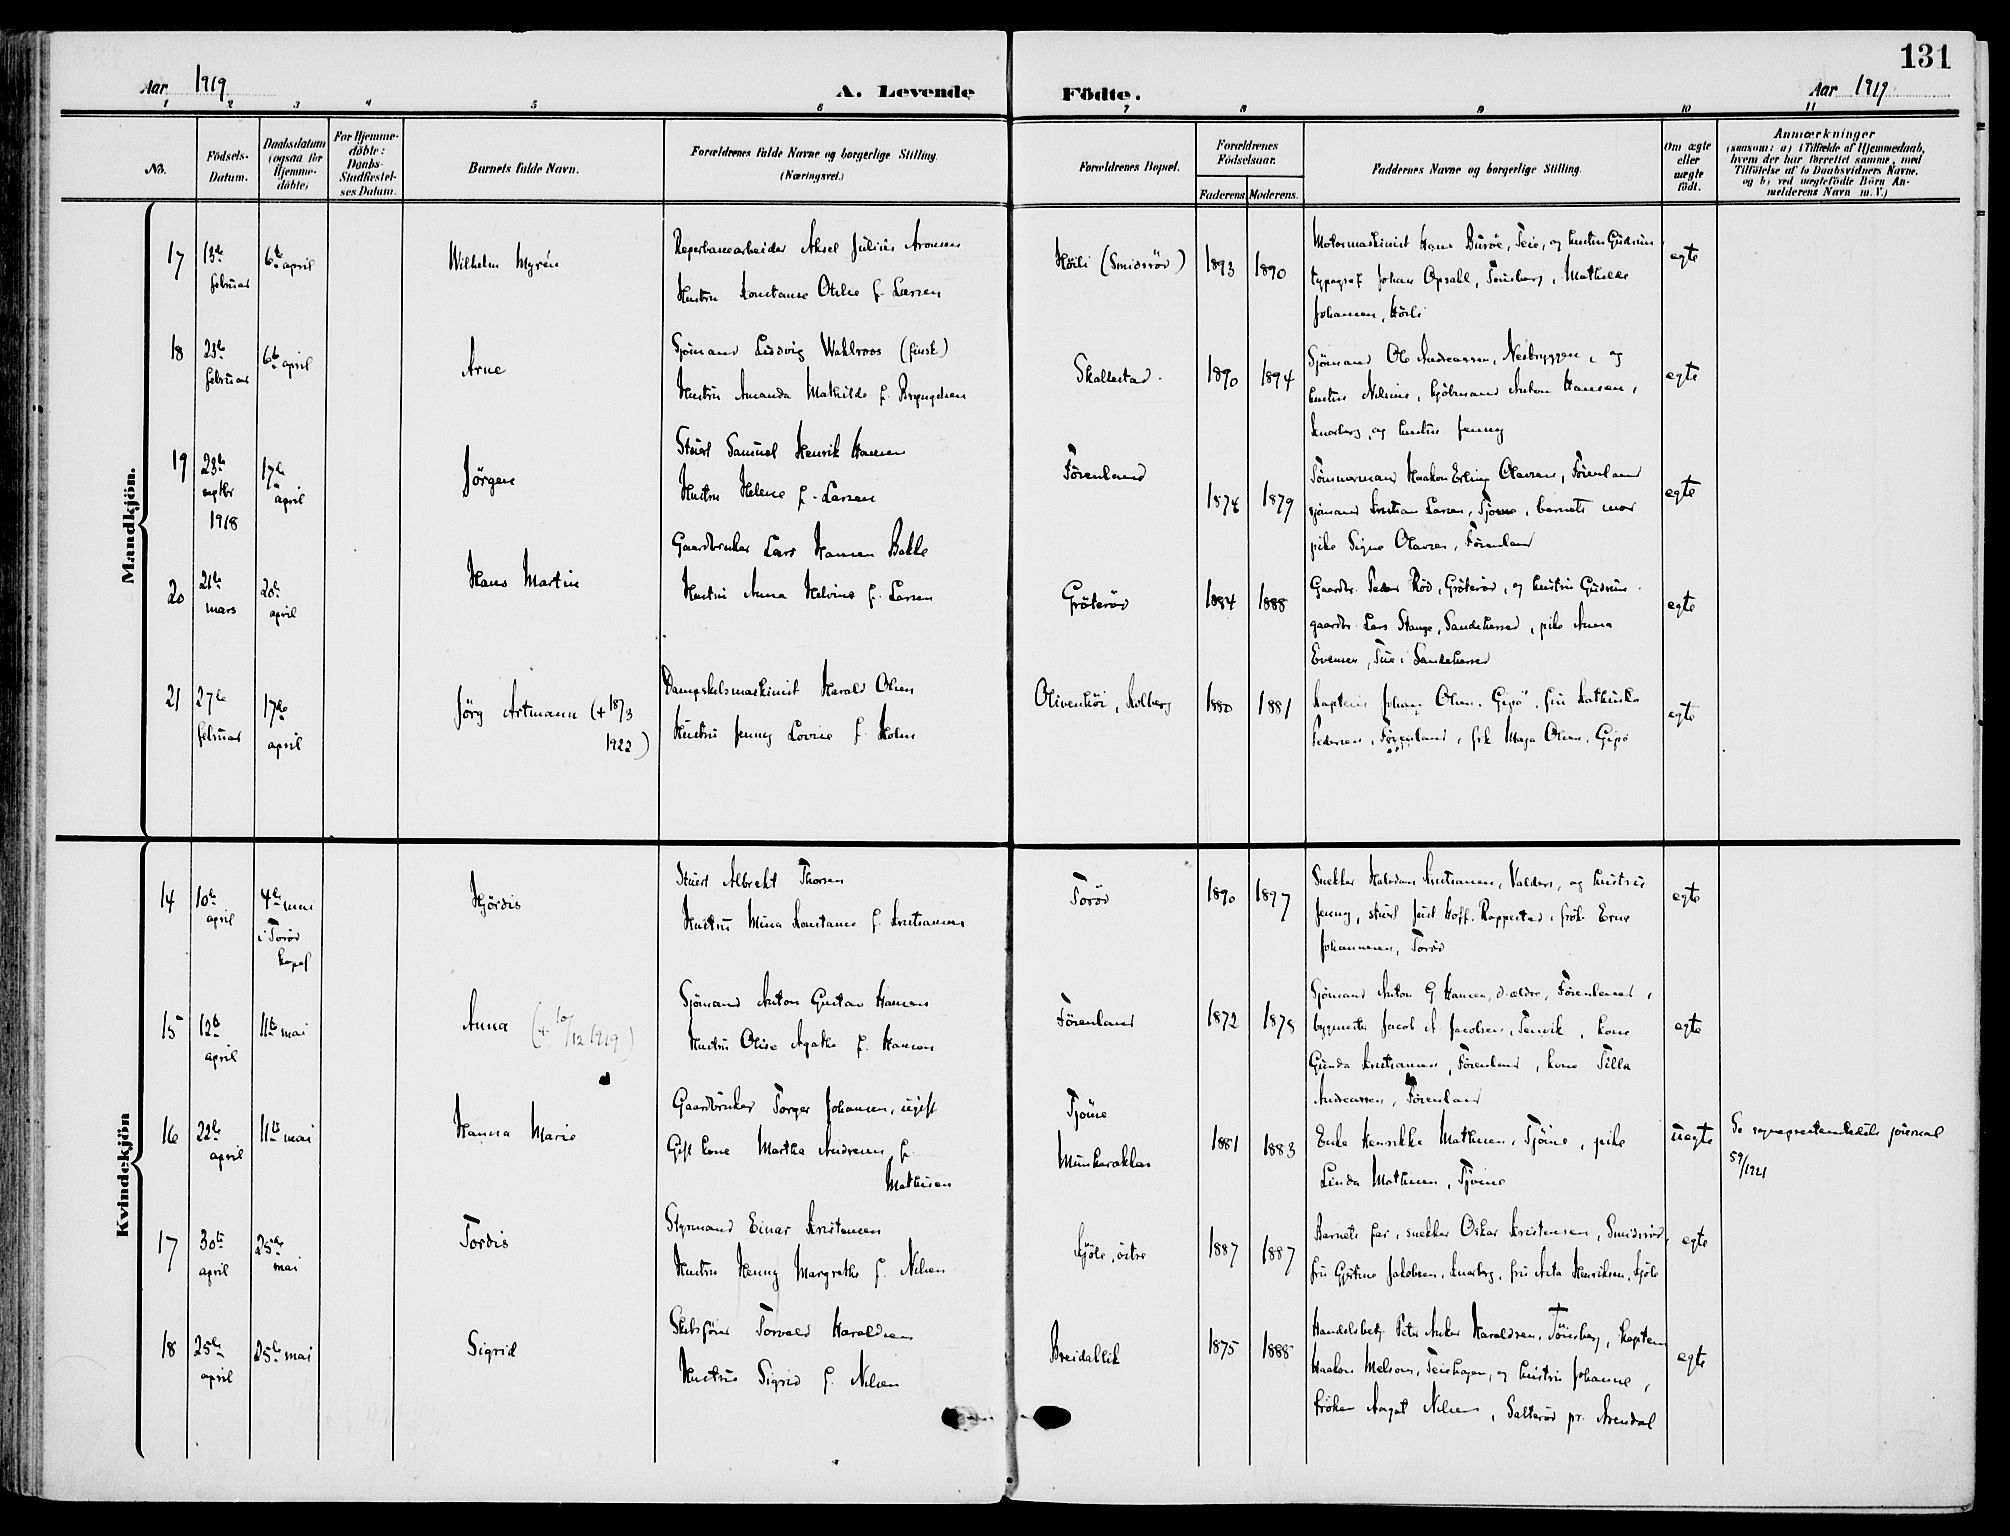 131
Aar 1919
A. Levende Födte.
Aar 1919
1 2 3 4 5 6 7 8 9 10 11
No.
Födsels-Datum.
Daabsdatum (ogsaa for Hjemme-döbte)
For Hjemme-döbte: Daabs-Stadfæstel-ses Datum.
Barnets fulde Navn.
Forældrenes fulde Navne og borgerlige Stilling. (Næringsvei.)
Forældrenes Bopæl.
Forældrenes Födselsaar.
Faderens. Moderens.
Faddernes Navne og borgerlige Stilling.
Om ægte eller uægte födt.
Anmærkninger
(saasom: a) i Tilfælde af Hjemmedaab, hvem der har forrettet samme, med Tilföielse af to Daabsvidners Navne, og b) ved uægtefödte Börn An-melderens Navn m. V.)
Mandkjön.
17
13de februar
6te april
Wilhelm Myrén
Reperbanearbeider Aksel Julius Aronsen
Hustru Konstanse Otilie f. Larsen
Höili (Smidsröd)
1893
1890
Motormaskinist Hans Buröe, Teie, og hustru Gudrun,
typograf Johan Opsahl, Tønsberg, Mathilde
Johansen, Höili
egte
18
23de februar
6te april
Arne
Sjömand Ludvig Wahlroos (finsk)
Hustru Amanda Mathilde f. Bryngelsen
Skallestad.
1890
1894
Sjömand Ole Andreassen, Nesbryggen, og
hustru Nilsine, kjöbmand Anton Hansen,
Knarberg, og hustru Jenny
egte
19
23de septbr 1918
17de april
Jörgen
Stuert Samuel Henrik Hansen
Hustru Helene f. Larsen
Förenland
1874
1879
Tömmermand Haakon Erling Olavsen, Förenland
sjömand Kristian Larsen, Tjöme, barnets mor
pike Signe Olavsen, Förenland
egte
20
21de mars
20de april
Hans Martin
Gaardbruker Lars Hansen Bakke
Hustru Anna Helvine f. Larsen
Gröteröd
1884
1888
Gaardbr. Peder Röd, Gröteröd, og hustru Gudrun.
gaardbr. Lars Stange, Sandeherred, pike Anna
Evensen, Tue i Sandeherred
egte
21
27de februar
17de april
Jörg Artmann (+ 18/3 1922)
Dampskibsmaskinist Harald Olsen
Hustru Jenny Lovise f. Holm
Olivenhöi, Kolberg
1880
1881
Kaptein Johan Olsen, Gipö, fru Kathinka
Pedersen, Förenland, frk Maja Olsen, Gipö
egte
Kvindekjön
14
10de april
4de mai i Toröd kapel
Hjördis
Stuert Albrekt Thorsen
Hustru Mina Konstanse f. Kristiansen
Toröd
1890
1897
Snekker Halvdan Kristiansen, Valders, og hustru
Jenny, stuert Just Hoff, Rappestad, frök. Erna
Johannesen, Toröd
egte
15
12te april
11te mai
Anna (+ 10/12 1919)
Sjömand Anton Gustav Hansen
Hustru Olise Agathe f. Hansen
Förenland
1872
1878
Sjömand Anton G Hansen, d. ældre, Förenland,
bygmester Jacob A Jacobsen, Tenvik, kone
Gunda Kristiansen, Förenland, kone Tilla
Andreassen, Förenland
egte
16
22de april
11te mai
Hanna Marie
Gaardbruker Torger Johansen, ugift
Gift kone Martha Andresen f. Mathisen
Tjöme
Munkerekken
1881
1883
Enke Henrikke Mathisen, Tjöme, pike
Linda Mathisen, Tjöme
uegte
Se sogneprestembedets journal 59/1921
17
30te april
25de mai
Tordis
Styrmand Einar Kristensen
Hustru Henny Margrethe f. Nilsen
Kjöle, östre
1887
1887
Barnets far, snekker Oskar Kristensen, Smidsröd,
fru Gjertine Jakobsen, Knarberg, fru Asta Henriksen, Kjöle
egte
18
25de april
25de mai
Sigrid
Skibsförer Torvald Haraldsen
Hustru Sigrid f. Nilsen
Breidablik
1875
1888
Handelsbetj. Peter Anker Haraldsen, Tönsberg, kaptein
Haakon Melsom, Teieskogen, og hustru Johanne,
fröken Aagot Nilsen, Salteröd pr. Arendal
egte